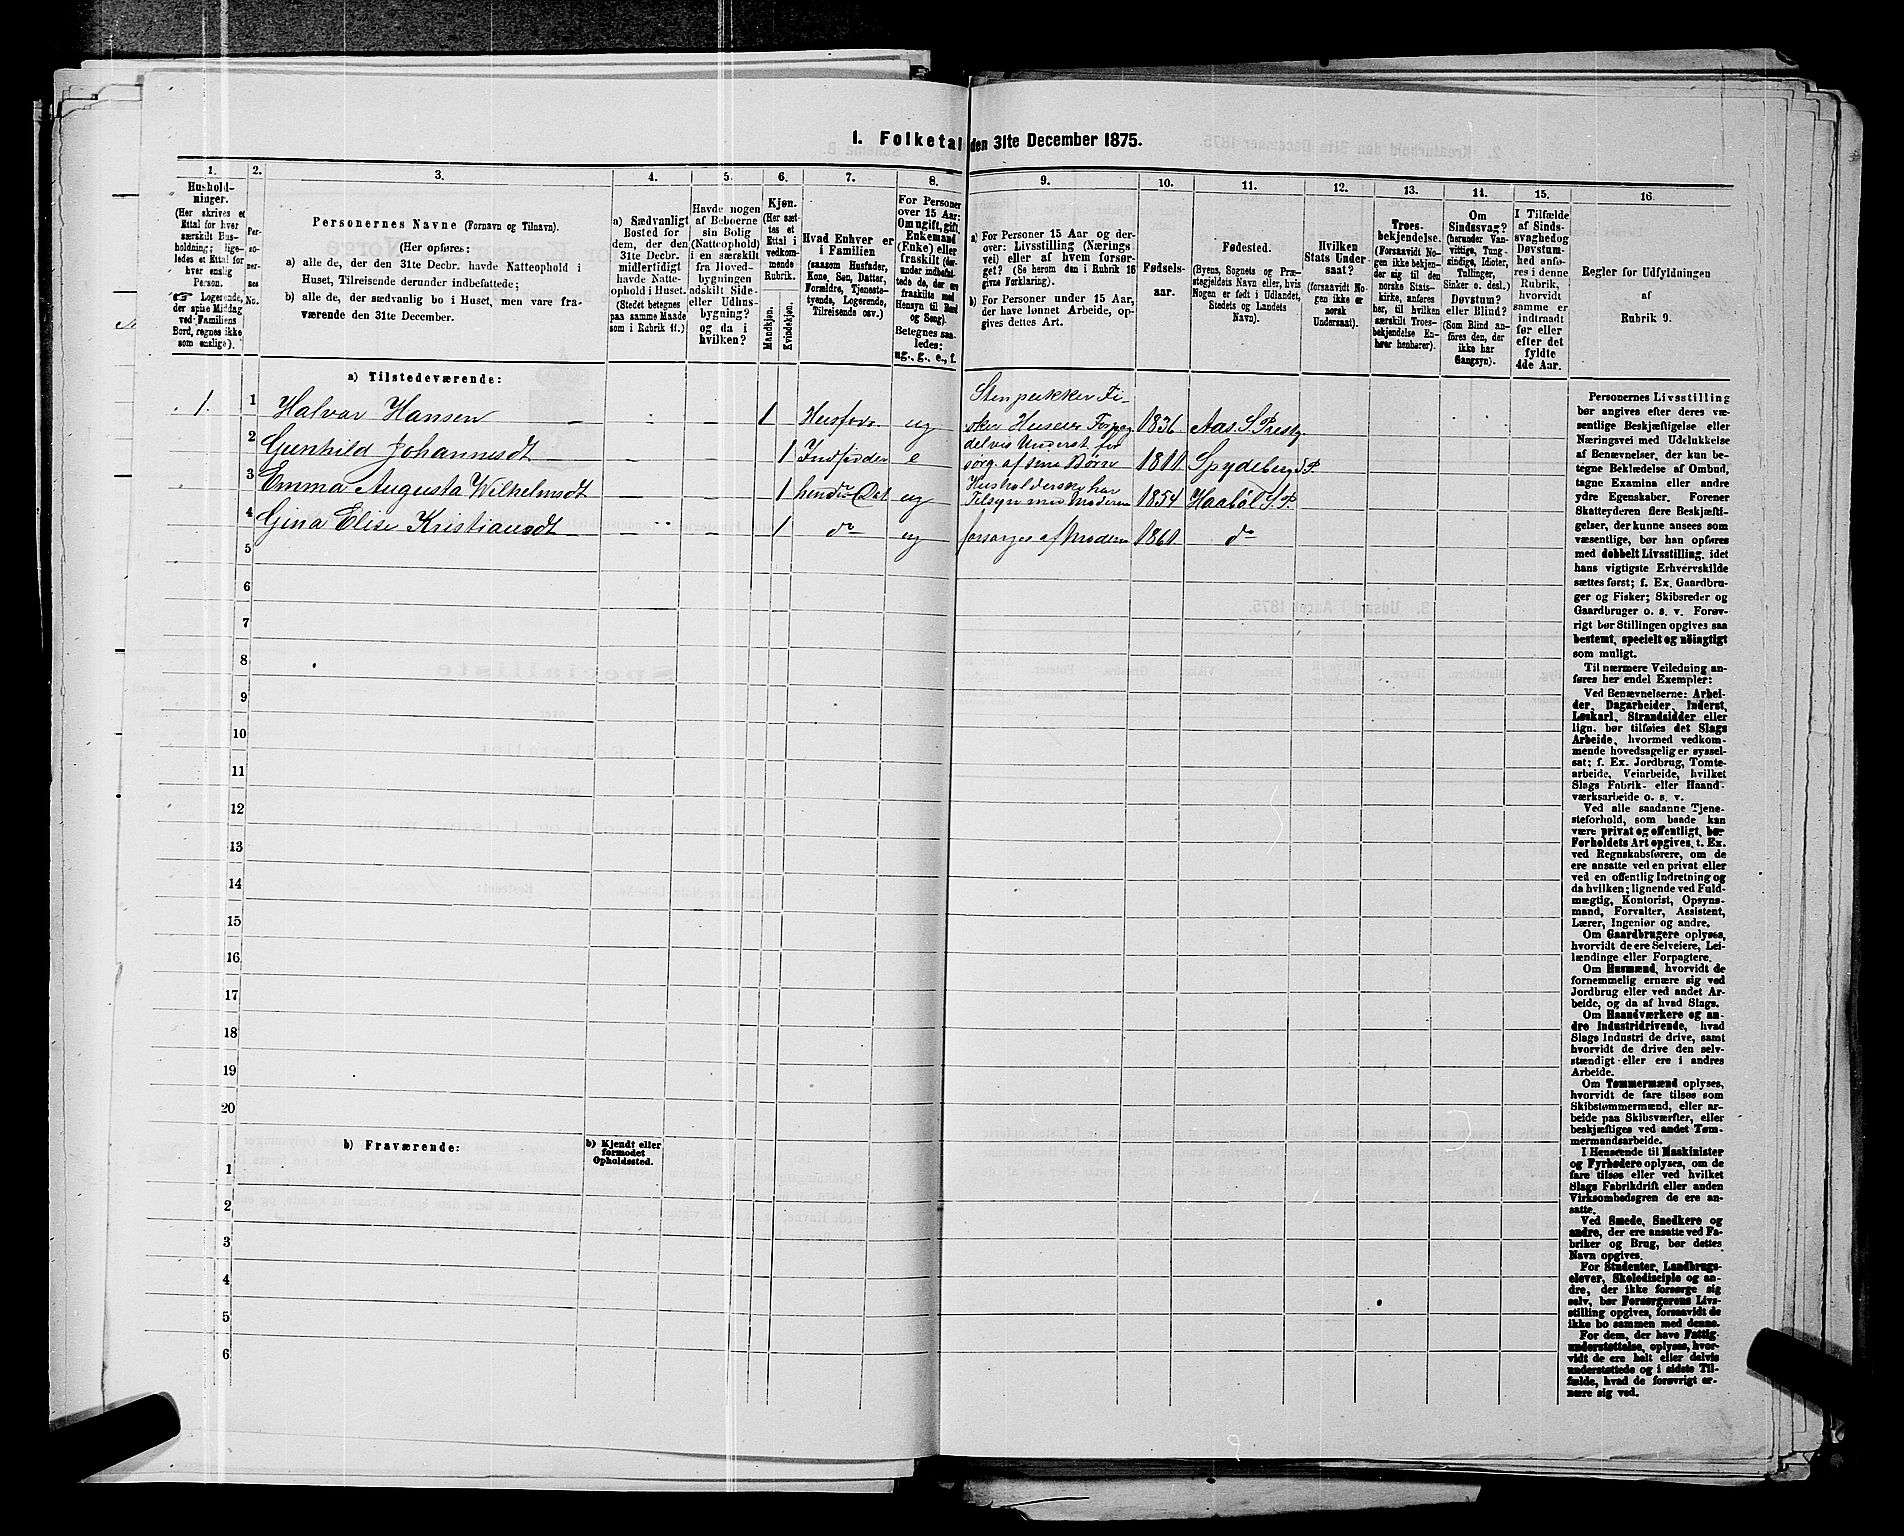 1. Folketal den 31te December 1875.
1.
Hushold-
ninger.
(Her skrives et
Ettal for hver
særskilt Hus-
holdning; lige-
ledes et Ettal for
hver enslig
Person.
Logerende,
der spise Middag
ved Familiens
Bord, regnes ikke
som enslige).
2.
Per-
so-
ner-
nes
No.
3.
Personernes Navne (Fornavn og Tilnavn).
(Her opføres:
a) alle de, der den 31te Decbr. havde Natteophold i
Huset, Tilreisende derunder indbefattede;
b) alle de, der sædvanlig bo i Huset, men vare fra-
værende den 31te December.
4.
a) Sædvanligt
Bosted for
dem, der den
31te Decbr.
midlertidigt
havde Natte-
ophold i Huset.
(Stedet betegnes
paa samme Maade
som i Rubrik 11.)
5.
Havde nogen
af Beboerne
sin Bolig
(Natteophold)
i en særskilt
fra Hoved-
bygningen
adskilt Side-
eller Udhus-
bygning?
og da i
hvilken?
6.
Kjøn.
(Her sæt-
tes et
Ettal i
vedkom-
mende
Rubrik.
Mandkjøn.
Kvindekjøn.
7.
Hvad Enhver er
i Familien
(saasom Husfader,
Kone, Søn, Datter,
Forældre, Tjeneste-
tyende, Logerende,
Tilreisende osv.)
8.
For Personer
over 15 Aar:
Om ugift, gift,
Enkemand
(Enke) eller
fraskilt (der-
under indbefat-
tede de, der ere
fraskilte med
Hensyn til Bord
og Seng).
Betegnes saa-
ledes:
ug., g., e., f.
9.
a) For Personer 15 Aar og der-
over: Livsstilling (Nærings-
vei) eller af hvem forsør-
get? (Se herom den i Rubrik 16
givne Forklaring).
b) For Personer under 15 Aar,
der have lønnet Arbeide, op-
gives dettes Art.
10.
Fødsels-
aar.
11.
Fødested.
(Byens, Sognets og Præ-
stegjeldets Navn eller, hvis
Nogen er født i Udlandet,
Stedets og Landets
Navn).
12.
Hvilken
Stats Under-
saat?
(forsaavidt No-
gen ikke er
norsk
Undersaat).
13.
Troes-
bekjendelse.
(Forsaavidt No-
gen ikke bekjen-
der sig til den
norske Stats-
kirke, anføres
her, til hvilken
særskilt Troes-
bekjendelse En-
hver henhører).
14.
Om
Sindssvag?
(herunder Van-
vittige, Tung-
sindige, Idioter,
Tullinger,
Sinker o. desl.)
Døvstum?
eller Blind?
(Som Blind an-
føres den, der
ikke har
Gangsyn).
15.
I Tilfælde
af Sinds-
svaghed og
Døvstum-
hed anfø-
res i denne
Rubrik,
hvorvidt
samme er
indtraadt
før eller
efter det
fyldte
4de Aar.
16.
Regler for Udfyldningen
af
Rubrik 9.
a) Tilstedeværende:
1. 1 Halvar Hansen — — 1 Husfader ug Stenpikker Fi-
sker Huseier Forpag. 1836 Aas. S. Prestg.
2 Gunhild Johannesdt — — 1 Indfødder e delvis Underst. for
sørg. af sine Børn 1811 Spydeberg S. P.
3 Emma Augusta Wilhelmsdt — — 1 hendes Dat ug Husholderske har
Tilsyn med Moderen 1854 Haabøl S. P.
4 Gina Elise Kristiansdt — — 1 do ug forsørges af Moderen 1861 do
5
6
7
8
9
10
11
12
13
14
15
16
17
18
19
20
b) Fraværende:
b) Kjendt eller
formodet
Opholdssted.
1
2
3
4
5
6
Personernes Livsstilling
bør angives efter deres væ-
sentlige Beskjæftigelse eller
Næringsvei med Udelukkelse
af Benævnelser, der kun be-
tegne Beklædelse af Ombud,
tagne Examina eller andre
ydre Egenskaber. Forener
Skatteyderen flere Beskjæfti-
gelser, der kunne ansees som
væsentlige, bør han opføres
med dobbelt Livsstilling, idet
hans vigtigste Erhvervskilde
sættes først; f. Ex. Gaardbru-
ger og Fisker; Skibsreder og
Gaardbruger o. s. v. Forøv-
rigt bør Stillingen opgives saa
bestemt, specielt og nöiagtigt
som muligt.
Til nærmere Veiledning an-
føres her endel Exempler:
Ved Benævnelserne: Arbei-
der, Dagarbeider, Inderst,
Løskarl, Strandsidder eller
lign. bør tilføies det Slags
Arbeide, hvormed vedkom-
mende hovedsagelig er syssel-
sat; f. Ex. Jordbrug, Tomte-
arbeide, Veiarbeide, hvilket
Slags Fabrik- eller Haand-
værksarbeide o. s. v.
Ved alle saadanne Tjene-
steforhold, som baade kan
være privat og offentligt, bør
Forholdets Art opgives, t. Ex.
ved Regnskabsførere, om de
ere ansatte ved en privat eller
ved en offentlig Indretning og
da hvilken; lignende ved Fuld-
mægtig, Kontorist, Opsyns-
mand, Forvalter, Assistent,
Lærer, Ingeniør og andre.
Om Gaardbrugere oplyses,
hvorvidt de ere Selveiere, Lei-
lændinge eller Forpagtere.
Om Husmænd, hvorvidt de
fornemmelig ernære sig ved
Jordbrug eller ved andet Ar-
beide, og da af hvad Slags.
Om Haandværkere og an-
dre Industridrivende, hvad
Slags Industri de drive, samt
hvorvidt de drive den selv-
stændigt eller ere i andres
Arbeide.
Om Tømmermænd oplyses,
hvorvidt de fare tilsøs som
Skibstømmermænd, eller ar-
beide paa Skibsværfter, eller
beskjæftiges ved andet Tøm-
mermandsarbeide.
I Henseende til Maskinister
og Fyrbødere oplyses, om de
fare tilsøs eller ved hvilket
Slags Fabrikdrift eller anden
Virksomhedsgren de ere an-
satte.
Ved Smede, Snedkere og
andre, der ere ansatte ved Fa-
briker og Brug, bør dettes
Navn opgives.
For Studenter, Landbrugs-
elever, Skoledisciple og an-
dre, der ikke forsørge sig
selv, bør Forsørgerens Livs-
stilling opgives, forsaavidt de
ikke bo sammen med denne.
For dem, der have Fattig-
understøttelse, oplyses, hvor-
vidt de ere helt eller delvis
understøttede og i sidste Til-
fælde, hvad de forøvrigt er-
nære sig ved.